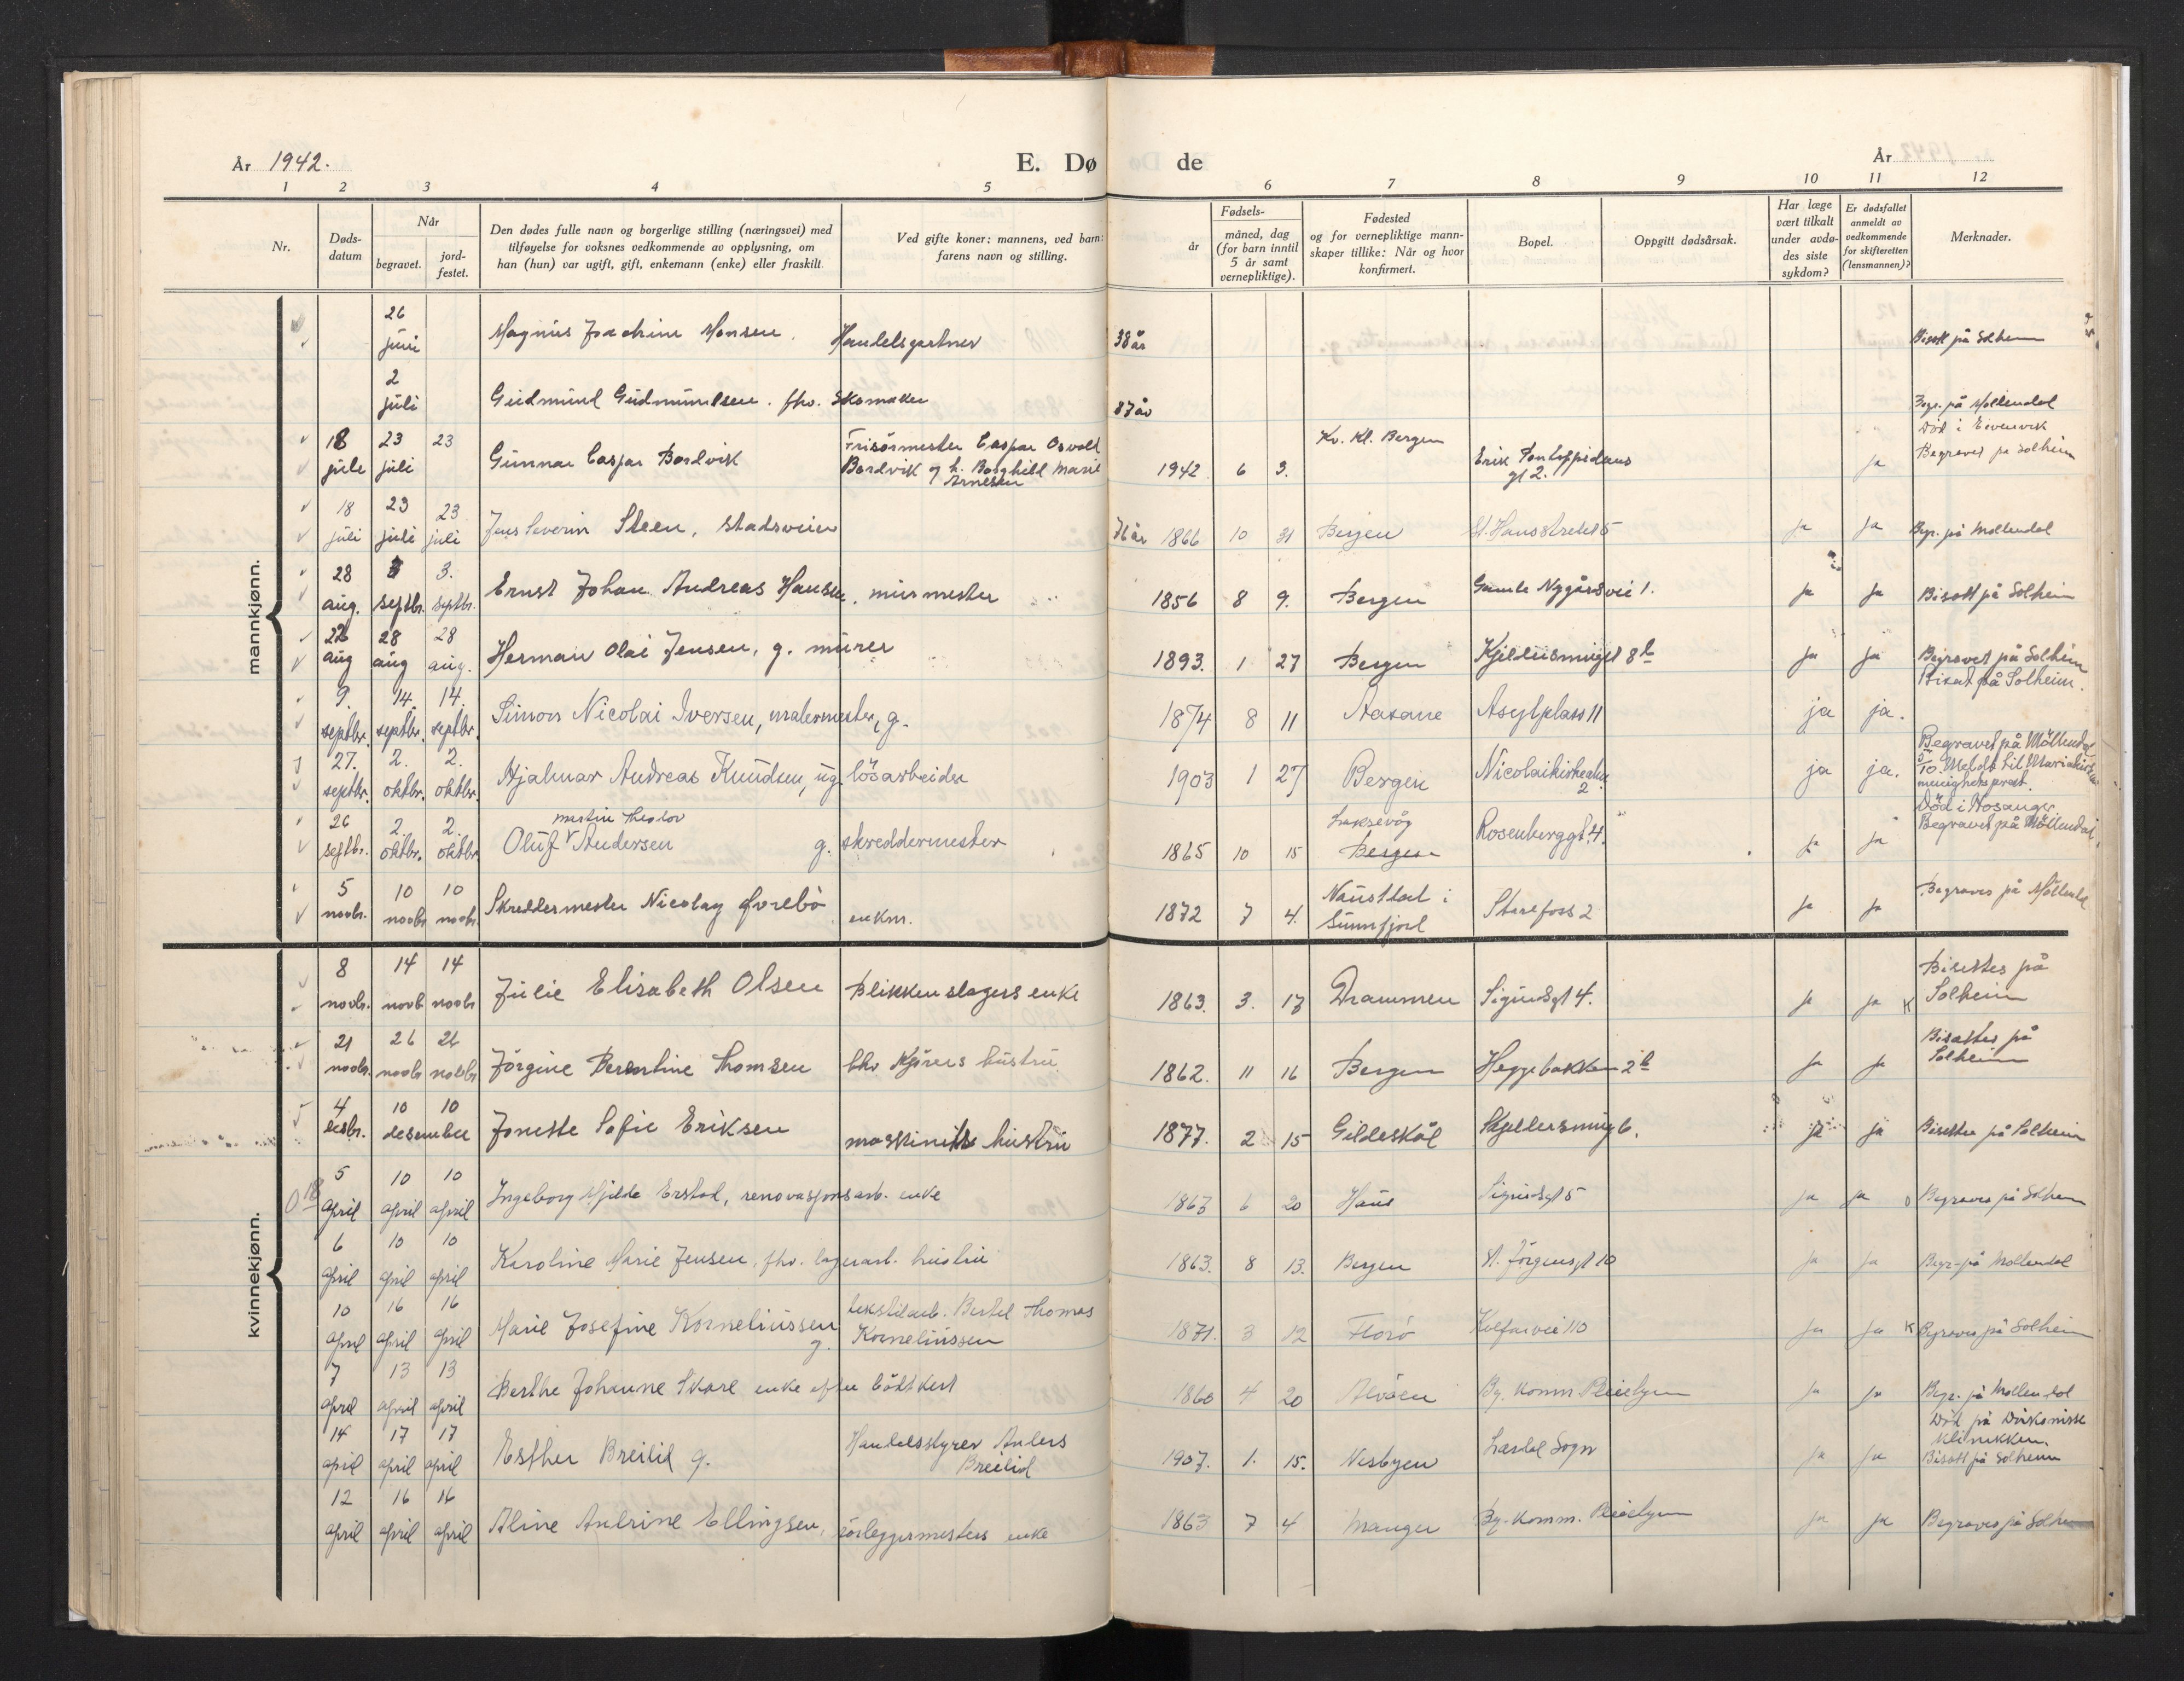 År 1942.
E. Dø de
År
1 2 3 4 5 6 7 8 9 10 11 12
Nr.
Døds-
datum
Når
begravet.
jord-
festet.
Den dødes fulle navn og borgerlige stilling (næringsvei) med
tilføyelse for voksnes vedkommende av opplysning, om
han (hun) var ugift, gift, enkemann (enke) eller fraskilt
Ved gifte koner: mannens, ved barn:
farens navn og stilling.
Fødsels-
år
måned, dag
(for barn inntil
5 år samt
vernepliktige).
Fødested
og for vernepliktige mann-
skaper tillike: Når og hvor
konfirmert.
Bopel.
Oppgitt dødsårsak.
Har læge
vært tilkalt
under avdø-
des siste
sykdom?
Er dødsfallet
anmeldt av
vedkommende
for skifteretten
(lensmannen)?
Merknader.
mannkjønn.
26
juni Magnus Joachim Monsen. Handelsgartner 38 år Bisatt på Solheim
2
juli Gudmund Gudmundsen. fhv. Skomaker 87 år Begr. på Møllendal
18 23 23 Frisørmester Caspar Osvald Kv. Kl. Bergen Erik Pontoppidans Død i Eivenvik
juli juli Gunnar Caspar Bordvik Bordvik og h. Borghild Marie 1942 6 3. gt 2. ja Begravet på Solheim
Arnesen
18 23 23
juli juli juli Jens Severin Steen, stadsveier 76 år 1866 10 31 Bergen St. Hansstredet 5 ja ja Begr. på Møllendal
28 3 3.
aug. septbr. septbr. Ernst Johan Andreas Hansen, murmester 1856 8 9. Bergen Gamle Nygårdsvei 1. ja ja Bisatt på Solheim
22 28 28
aug aug aug. Herman Olai Jensen, g. murer 1893. 1 27 Bergen 8 b ja ja Begravet på Solheim
9. 14. 14. Bisat på Solheim.
septbr. septbr. septbr. Simon Nicolai Iversen, malermester, g. 1874 8 11 Aasane Asylplass 11 ja ja.
27. 2. 2. Begravet på Möllendal
septbr. oktbr. oktbr. Hjalmar Andreas Knudsen, ug. lösarbeider 1903 1 27 Bergen Nicolaikirkealm. 2 ja ja. Meldt til Mariakirken
menighetsprest.
26 2. 2. martin Theodor Laksevåg Död i Hosanger.
septbr. oktbr. oktbr. Oluf Andersen g. skreddermester 1865 10 15 Bergen Rosenberggt. 4. ja ja Begravet på Möllendal.
5 10 10 Naustdal i Begraves på Möllendal
novbr. novbr novbr. Skreddermester Nicolay Øvrebö enkm. 1872 7 4. Sunnfjord Starefoss 2 ja ja
kvinnekjønn.
8 14 14 Bisettes på
novbr. novb novbr Julie Elisabeth Olsen Blikkenslagers enke 1863. 3. 17 Drammen Sigurdsgt 4. ja ja K Solheim
21 26 26 Bisettes på
novbr. novbr novbr Jörgine Berentine Thomsen fhv Kjörers hustru 1862. 11 16 Bergen Heggebakken 2 b ja ja Solheim
4 10 10
desbr. desember Jonette Sofie Eriksen maskinists hustru 1877. 2 15 Gildeskål Skjellersmug 6. ja ja Bisettes på Solheim
5 10 10
018 april april april Ingeborg Mjelde Erstad, renovasjonsarb. enke 1867 6 20 Haus Sigurdsgt 5 ja ja o Begraves på Solheim
6 10 10
april april april Karoline Marie Jensen, fhv. lagerarb. hustru 1863. 8 13. Bergen St. Jörgensgt 10 ja ja Begr. på Møllendal
10 16 16 tekstilarb. Bertel Thomas
april april april Marie Josefine Korneliussen g. Korneliussen 1871. 3 12 Florö Kalfarvei 110 ja ja K Begraves på Solheim
7 13 13
april april april Berthe Johanne Skare enke efter 1860 4 20 Alvöen By. komm. Pleiehjem ja ja Begr. på Møllendal
14 17 17 Handelsstyrer Anders Død på Diakonisse
klinikken.
april april april Esther Breilid g. Breilid 1907. 1. 15. Nesbyen Lærdal Sogn ja ja Bisatt på Solheim
12 16 16
april april april Aline Andrine Ellingsen, rörleggermesters enke 1863 7 4 Manger By. komm. Pleiehjem ja ja Begraves på Solheim